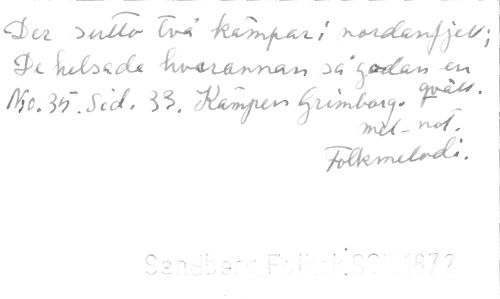 Der sutto två kämpar i nordanfjell;
De helsade hvarannan så godan en
qväll.
No. 35. Sid. 33. Kämpen Grimborg.
mel-not.
Folkmelodi.
Sandberg, 1872